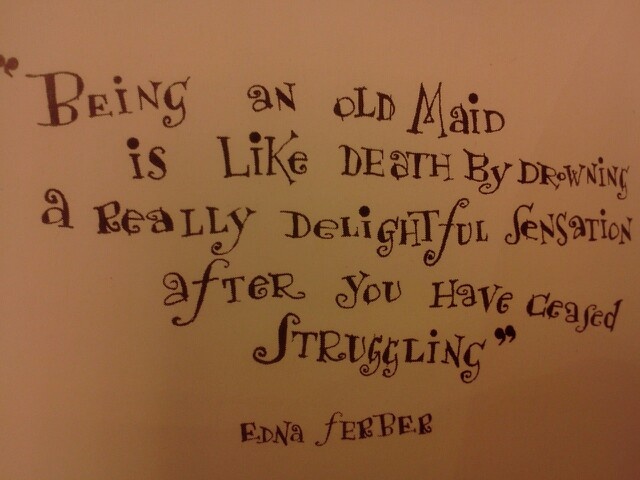 "Being an old Maid
is Like Death By Drowning
a Really Delightful Sensation
after you Have Ceased
Struggling"
Edna Ferber